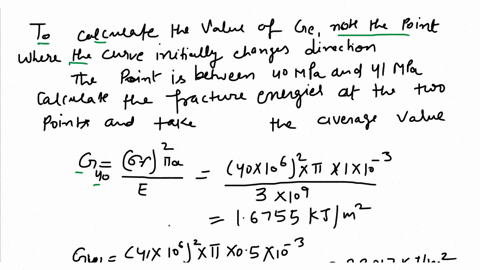 To calculate the value of Gc, note the point
where the curve initially changes direction
The point is between 40 MPa and 41 MPa
Calculate the fracture energies at the two
points and take the average value
G₄₀ = (σr)² πa / E = (40×10⁶)² × π × 1×10⁻³ / 3×10⁹
= 1.6755 KJ/m²
(41×10⁶)² × π × 0.5×10⁻³